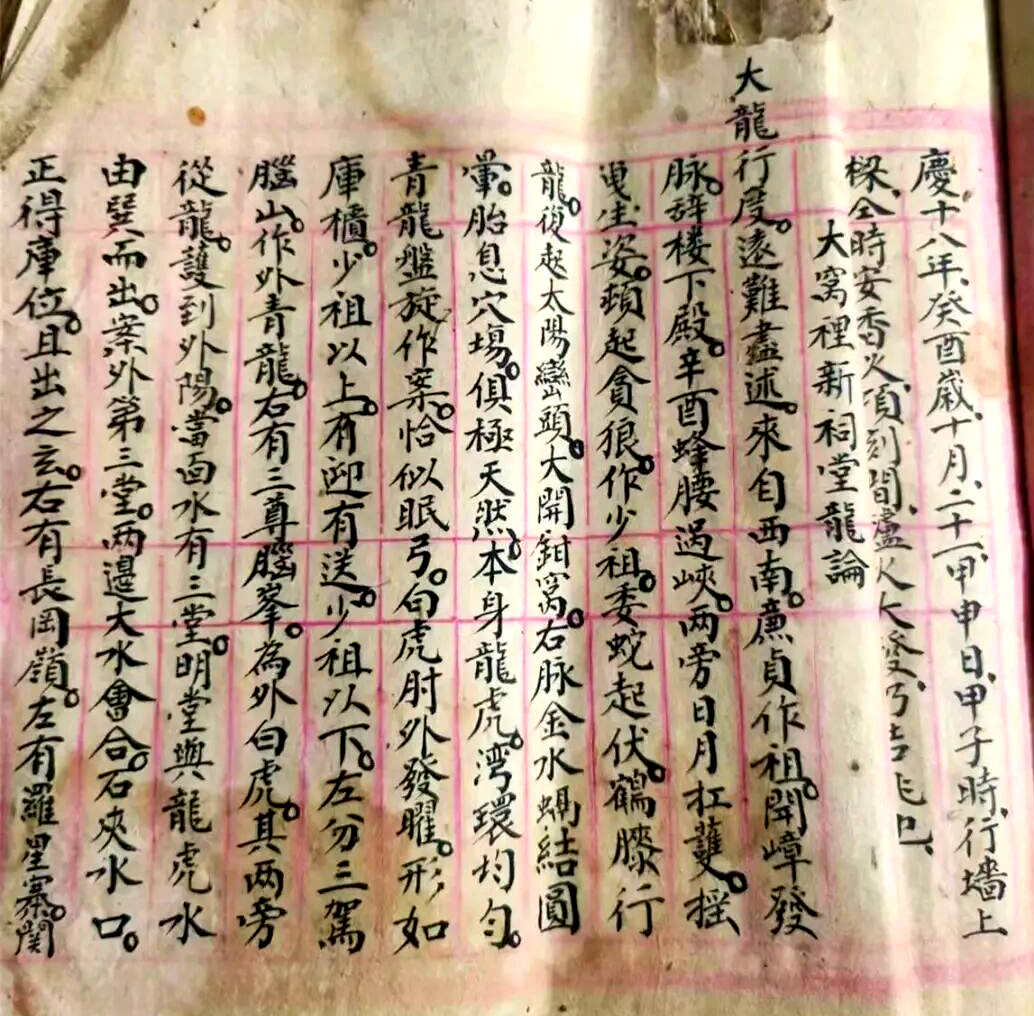 慶十八年、癸酉歲、十月、二十一、甲申日、甲子時、行墻上
樑、仝時安香火、項刻間、爐火大發、巧吉兆也、
大窩裡新祠堂龍論
大龍行度。遠難盡述。來自西南。廉貞作祖。開嶂發
脉。辞楼下殿。辛酉蜂腰過峽。兩旁日月扛護。搖
曳生姿。頓起貪狼。作少祖。委蛇起伏。鶴膝行
龍。復起太陽巒頭。大開鉗窩。右脉金水蝸結圓
暈。胎息穴塲。俱極天然。本身龍虎。湾環均勻。
青龍盤旋作案。恰似眠弓。白虎肘外發曜。形如
庫櫃。少祖以上。有迎有送。少祖以下。左分三駕
腦山。作外青龍。右有三尊腦峯。為外白虎。其兩旁
從龍。護到外陽。當面水有三堂。明堂與龍虎水
由巽而出。案外第三堂。兩邊大水會合。石夾水口。
正得庫位。且出之玄。右有長岡嶺。左有羅星寨。関